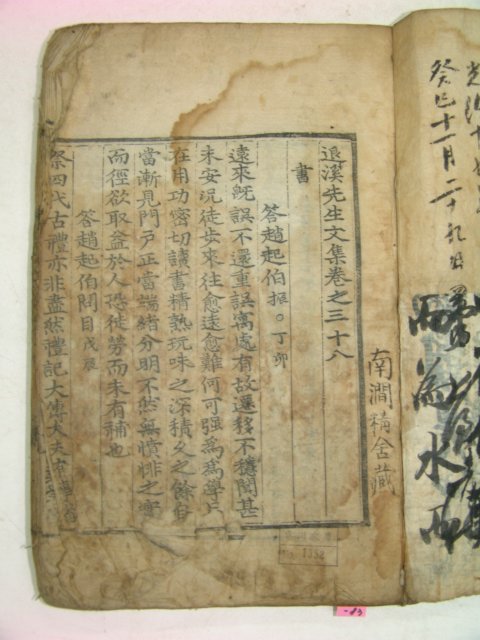 退溪先生文集卷之三十八
書
答趙起伯振○丁卯
遠來旣誤不還重誤寓處有故遷移不穫聞甚
未安況徒步來往愈遠愈難何可強爲爲學只
在用功密切讀書精熟玩味之深積久之餘自
當漸見門戶正當端緖分明不然無憤悱之實
而徑欲取益於人恐徒勞而未有補也
答趙起伯問目戊辰
祭四代古禮亦非盡然禮記大傳大夫有事省
南澗精舍藏
癸巳十一月二十九日
爲水
1352
-13